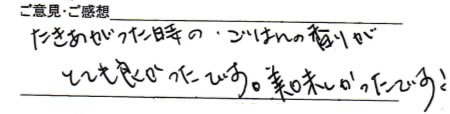 ご意見・ご感想
たきあがった時の、ごはんの香りが
とても良かったです。美味しかったです!